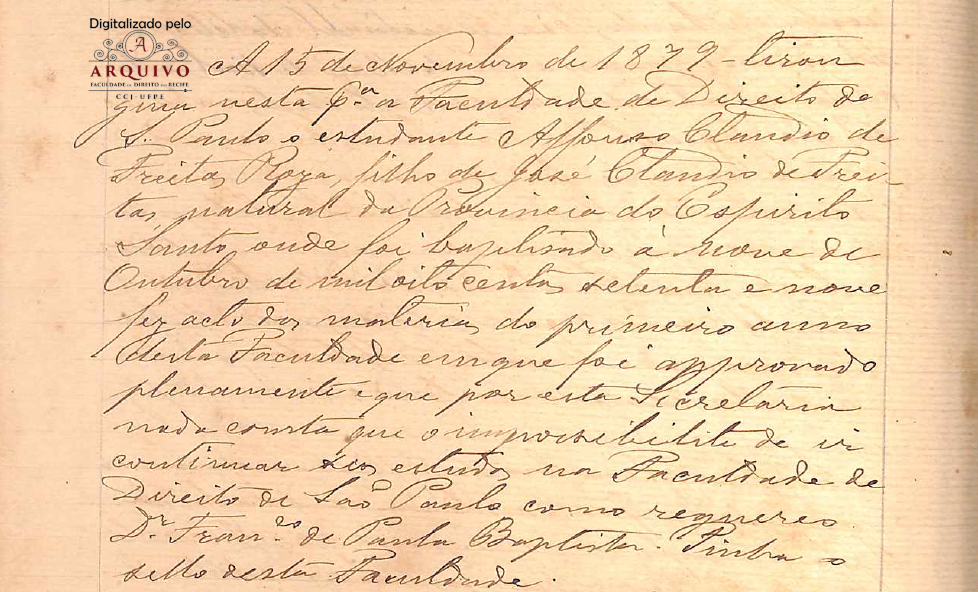 Digitalizado pelo
A
ARQUIVO
FACULDADE DE DIREITO DO RECIFE
CCJ-UFPE
A 15 de Novembro de 1879 - tirou
guia nesta pª a Faculdade de Direito de
S. Paulo o estudante Affonso Claudio de
Freitas Roza, filho de José Claudio de Frei-
tas, natural da Provincia do Espirito
Santo, onde foi baptisado á nove de
Outubro de mil oito centos setenta e nove
fez acto das materias do primeiro anno
desta Faculdade em que foi approvado
plenamente e que por esta Secretaria
nada consta que o impossibilite de ir
continuar seos estudos na Faculdade de
Direito de São Paulo como requereo.
Dr. Franco. de Paula Baptista. Tinha o
sello desta Faculdade.